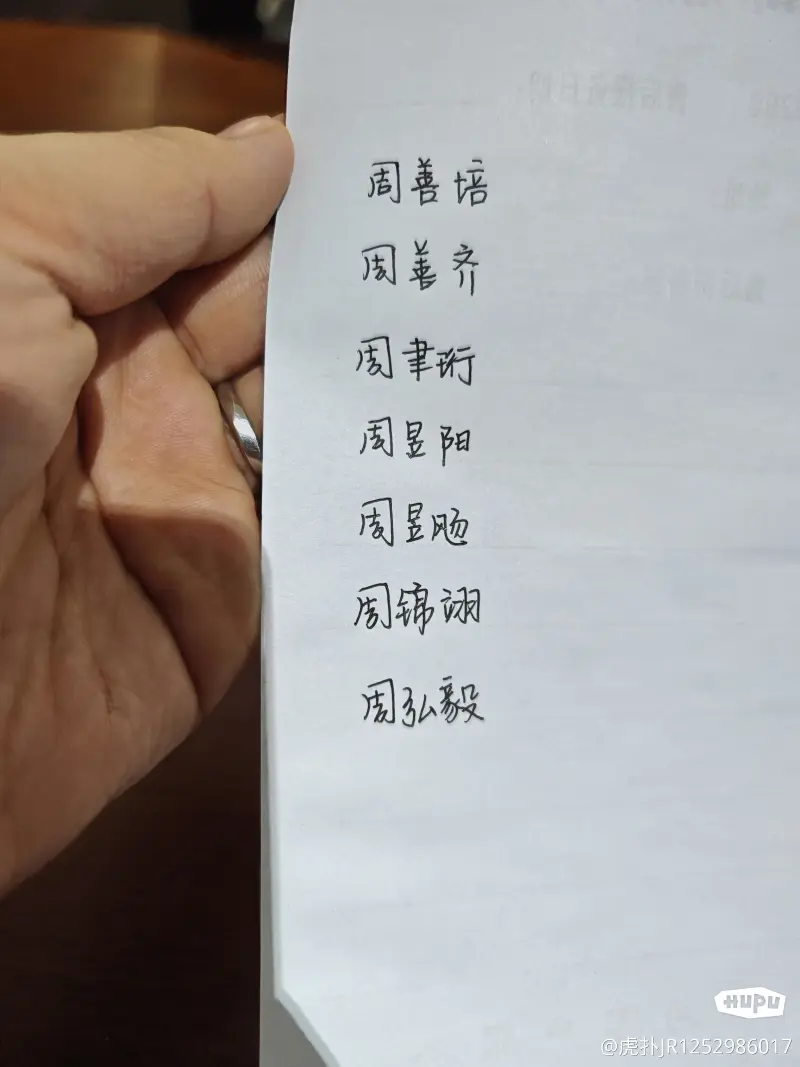 周善培
周善齐
周聿珩
周昱阳
周昱旸
周锦翊
周弘毅
HUPU
@虎扑JR1252986017